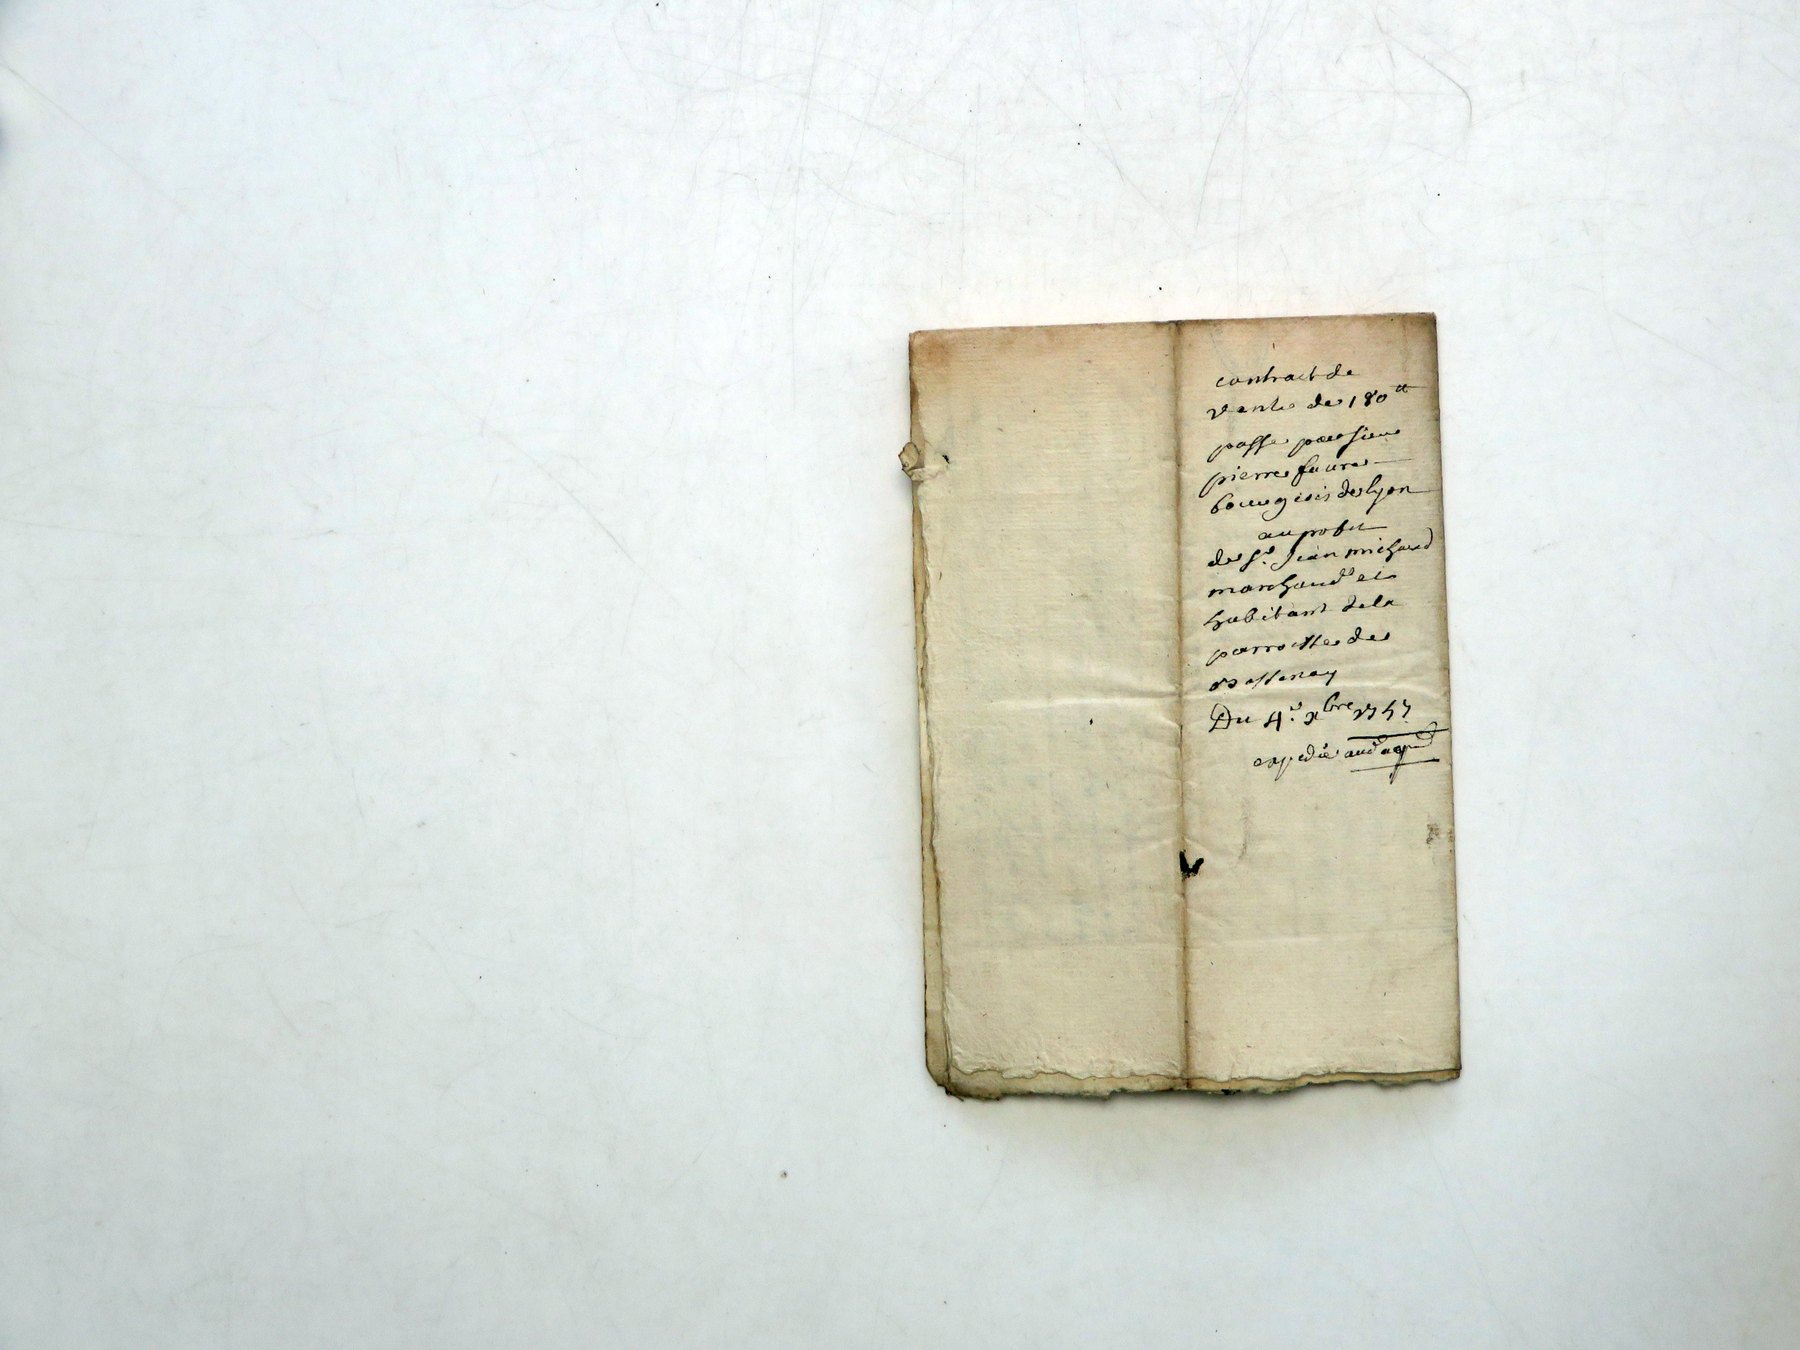 contract de
vente de 180ᵗᵗ
passé par sieur
pierre faure
bourgeois de lyon
au profit
de sʳ. Jean michard
marchand et
habitant de la
parroisse de
Du 4ᵉ. xbre 1757
expedié aud acq